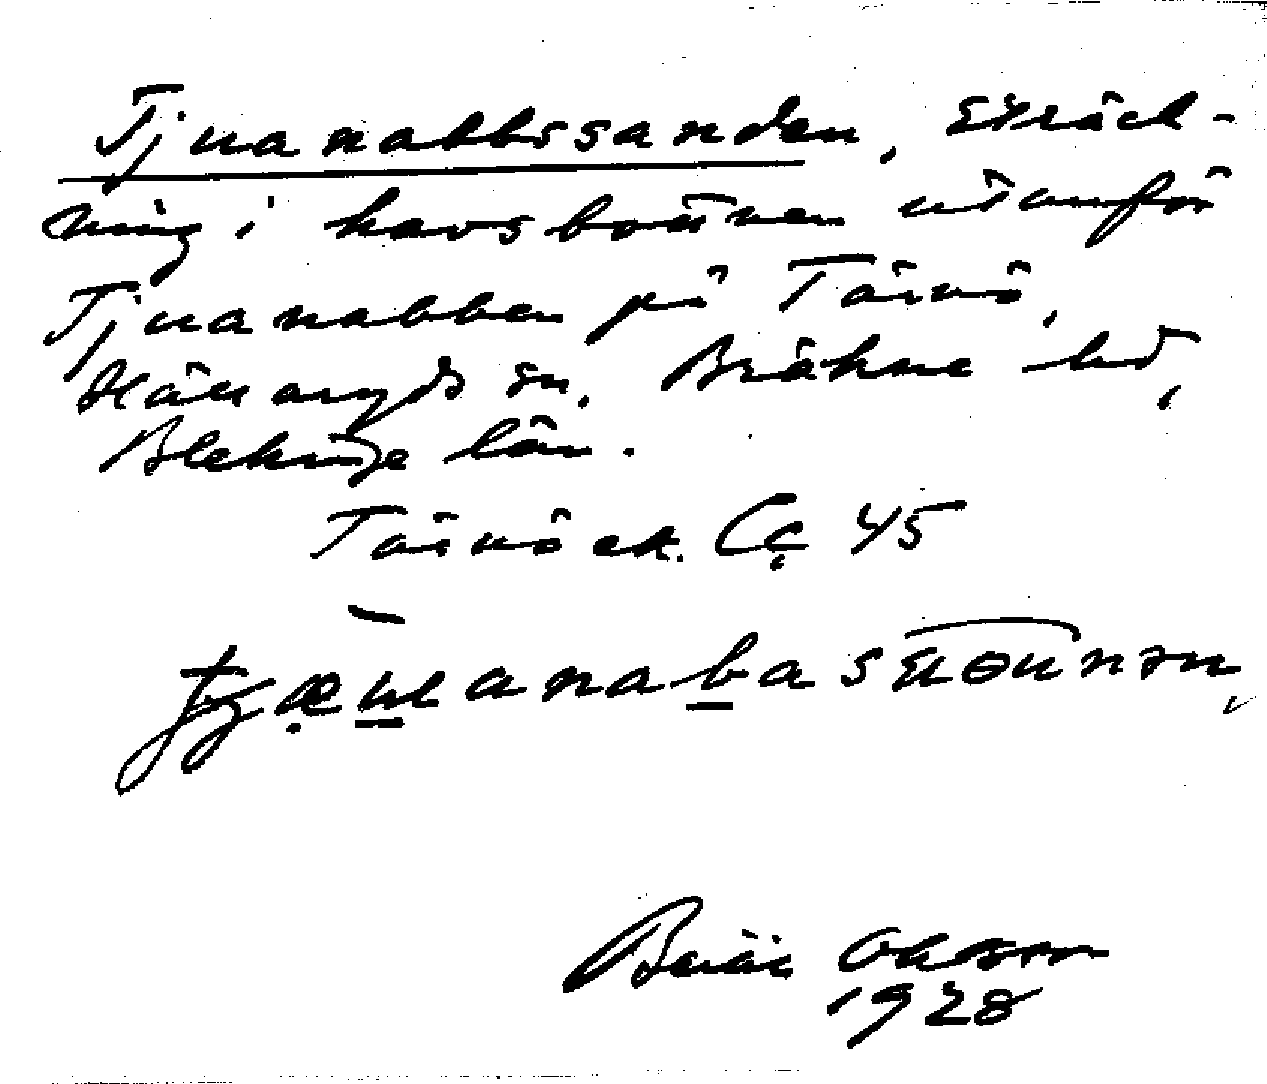 Tjuanabbssanden, sträck-
ning i havsbottnen utanför
Tjuanabben på Tärnö,
Hällaryds sn. Bräkne hd,
Blekinge län.
Tärnö ek. Cc 45
Bror Ohlsson
1928